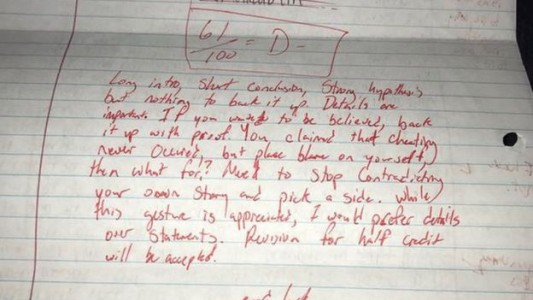 61
100 = D-
Long intro, short conclusion, strong hypothesis
but nothing to back it up. Details are
important. If you wanted to be believed, back
it up with proof. You claimed that cheating
never occured, but place blame on yourself,
then what for? Need to stop contradicting
your own story and pick a side. While
this gesture is appreciated, I would prefer details
over statements. Revision for half credit
will be accepted.